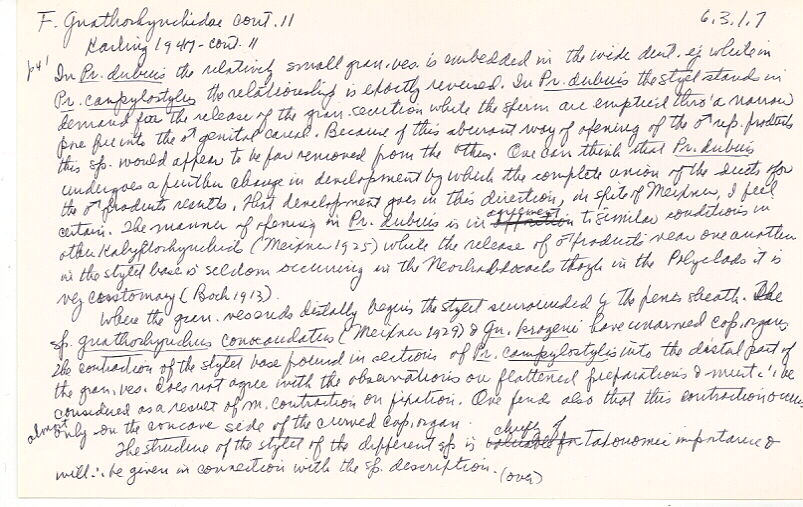 F. Gnathorhynchidae cont. 11 6.3.1.7
Karling 1947 - cont. 11
p41 In Pr. dubius the relatively small gran. ves. is embedded in the wide duct. ej while in
Pr. campylostylus the relationship is exactly reversed. In Pr. dubius the stylet stands in
demand for the release of the gran. secretion while the sperm are emptied thro' a narrow
pore into the ♂ genital canal. Because of this aberrant way of opening of the ♂ rep. products
this sp. would appear to be far removed from the others. One can think that Pr. dubius
undergoes a further change in development by which the complete union of the ducts for
the ♂ products results. That development goes in this direction, in spite of Meixner, I feel
certain. The manner of opening in Pr. dubius is in agreement to similar conditions in
other Kalyptorhynchids (Meixner 1925) while the release of ♂ products near one another
in the stylet base is seldom occurring in the Neorhabdocoels though in the Polyclads it is
very customary (Bock 1913).
Where the gran. ves. ends distally begins the stylet surrounded by the penis sheath. The
sp. gnathorhynchus conocaudatus (Meixner 1929) & Gn. krogeni have unarmed cop. organs
The contraction of the stylet base found in sections of Pr. campylostylus into the distal part of
the gran. ves. does not agree with the observations on flattened preparations & must ∴ be
considered as a result of m. contraction on fixation. One finds also that this contraction occurs
almost only on the concave side of the curved cop. organ.
The structure of the stylet of the different sp. is chiefly of taxonomic importance &
will ∴ be given in connection with the sp. description. (over)